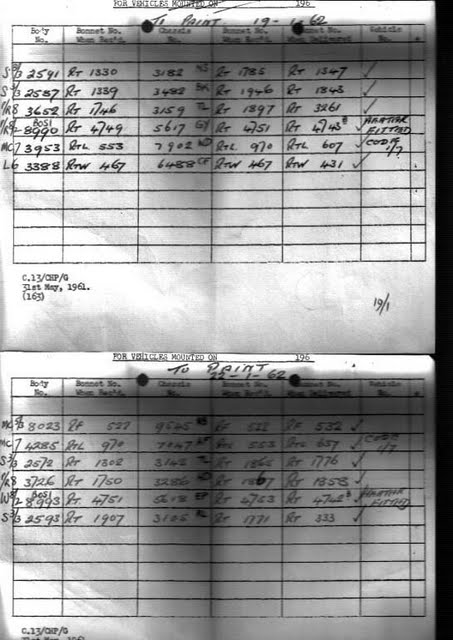 FOR VEHICLES MOUNTED ON 196
To PAINT 19-1-62
Body No. Bonnet No. When Rec'd. Chassis No. Bonnet No. When Delivered Vehicle No.
S3/3 2591 RT 1330 3182 NS RT 1785 RT 1347 ✓
S3/3 2587 RT 1339 3482 BK RT 1946 RT 1843 ✓
1/R8 3652 RT 1746 3159 TL RT 1897 RT 3261 ✓
8990 RT 4749 5617 GY RT 4751 RT 4743 ✓ HEATER FITTED
MC7 3953 RTL 553 7902 WD RTL 970 RTL 607 ✓ CODE 1/7
L6 3388 RTW 467 6488 CF RTW 467 RTW 431 ✓
C.13/CHP/G
31st May, 1961.
(163)
19/1
FOR VEHICLES MOUNTED ON 196
To PAINT
22-1-62
Body No. Bonnet No. When Rec'd. Chassis No. Bonnet No. When Delivered Vehicle No.
8023 RF 527 9545 RF 532 ✓
MC7 4285 RTL 970 7047 RTL 553 RTL 657 ✓ CODE 1/7
S3/3 2572 RT 1302 3142 TL RT RT 1776 ✓
1/R8 3726 RT 1750 3286 RT 1807 RT 1858 ✓
8993 RT 4751 5618 EP RT 4753 RT ✓ HEATER FITTED
S3/3 2593 RT 1907 3105 RT 1771 RT 333 ✓
C.13/CHP/G